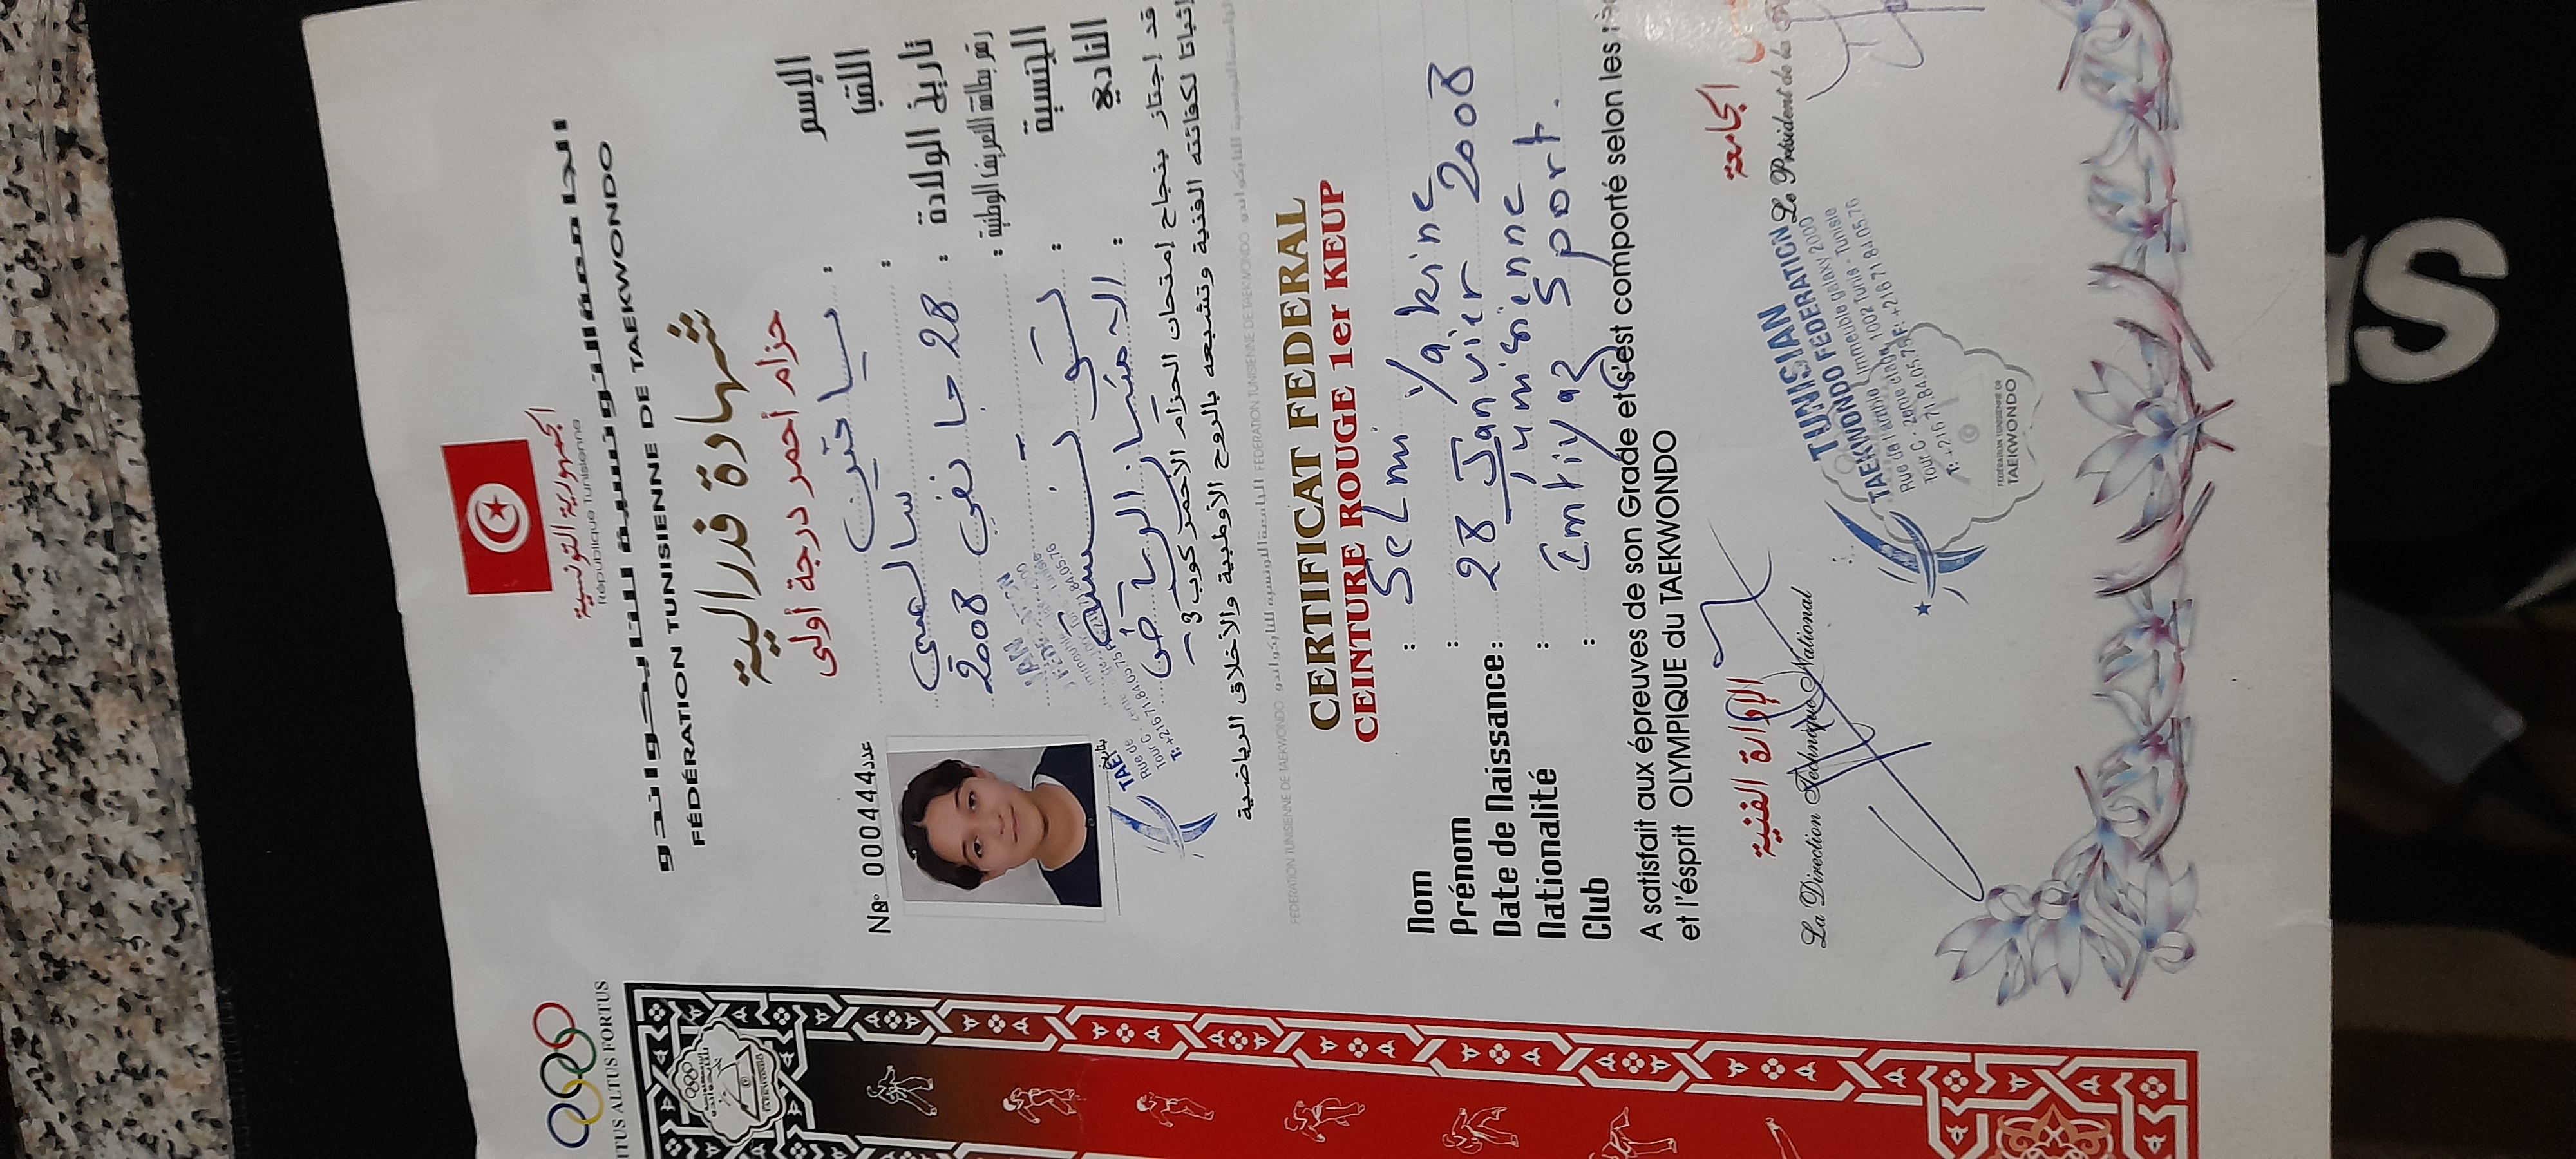 CITIUS ALTUS FORTUS
الجمهورية التونسية
République Tunisienne
الجامعة التونسية للتايكواندو
FÉDÉRATION TUNISIENNE DE TAEKWONDO
شهادة فدرالية
حزام أحمر درجة أولى
N° 0004444 عدد
الإسم :
اللقب : سالمي
تاريخ الولادة : 28 جانفي 2008
رقم بطاقة التعريف الوطنية :
الجنسية : تونسية
النادي :
قد إجتاز بنجاح إمتحان الحزام الأحمر كوب
بتاريخ
إثباتا لكفائته الفنية وتشبعه بالروح الأولمبية والأخلاق الرياضية
FEDERATION TUNISIENNE DE TAEKWONDO الجامعة التونسية للتايكواندو FEDERATION TUNISIENNE DE TAEKWONDO الجامعة التونسية للتايكواندو
CERTIFICAT FEDERAL
CEINTURE ROUGE 1er KEUP
Nom : Selmi Yakine
Prénom :
Date de Naissance : 28 Janvier 2008
Nationalité : Tunisienne
Club : Imtiyaz Sport.
A satisfait aux épreuves de son Grade et s'est comporté selon les
et l'ésprit OLYMPIQUE du TAEKWONDO
الإدارة الفنية
La Direction Technique National
الجامعة
Le Président de la
TUNISIAN
TAEKWONDO FEDERATION
Immeuble Galaxy 2000
Tour C - 2ème étage, 1002 Tunis - Tunisie
T: +216.71.84.05.75 F: +216.71.84.05.76
FEDERATION TUNISIENNE DE
TAEKWONDO